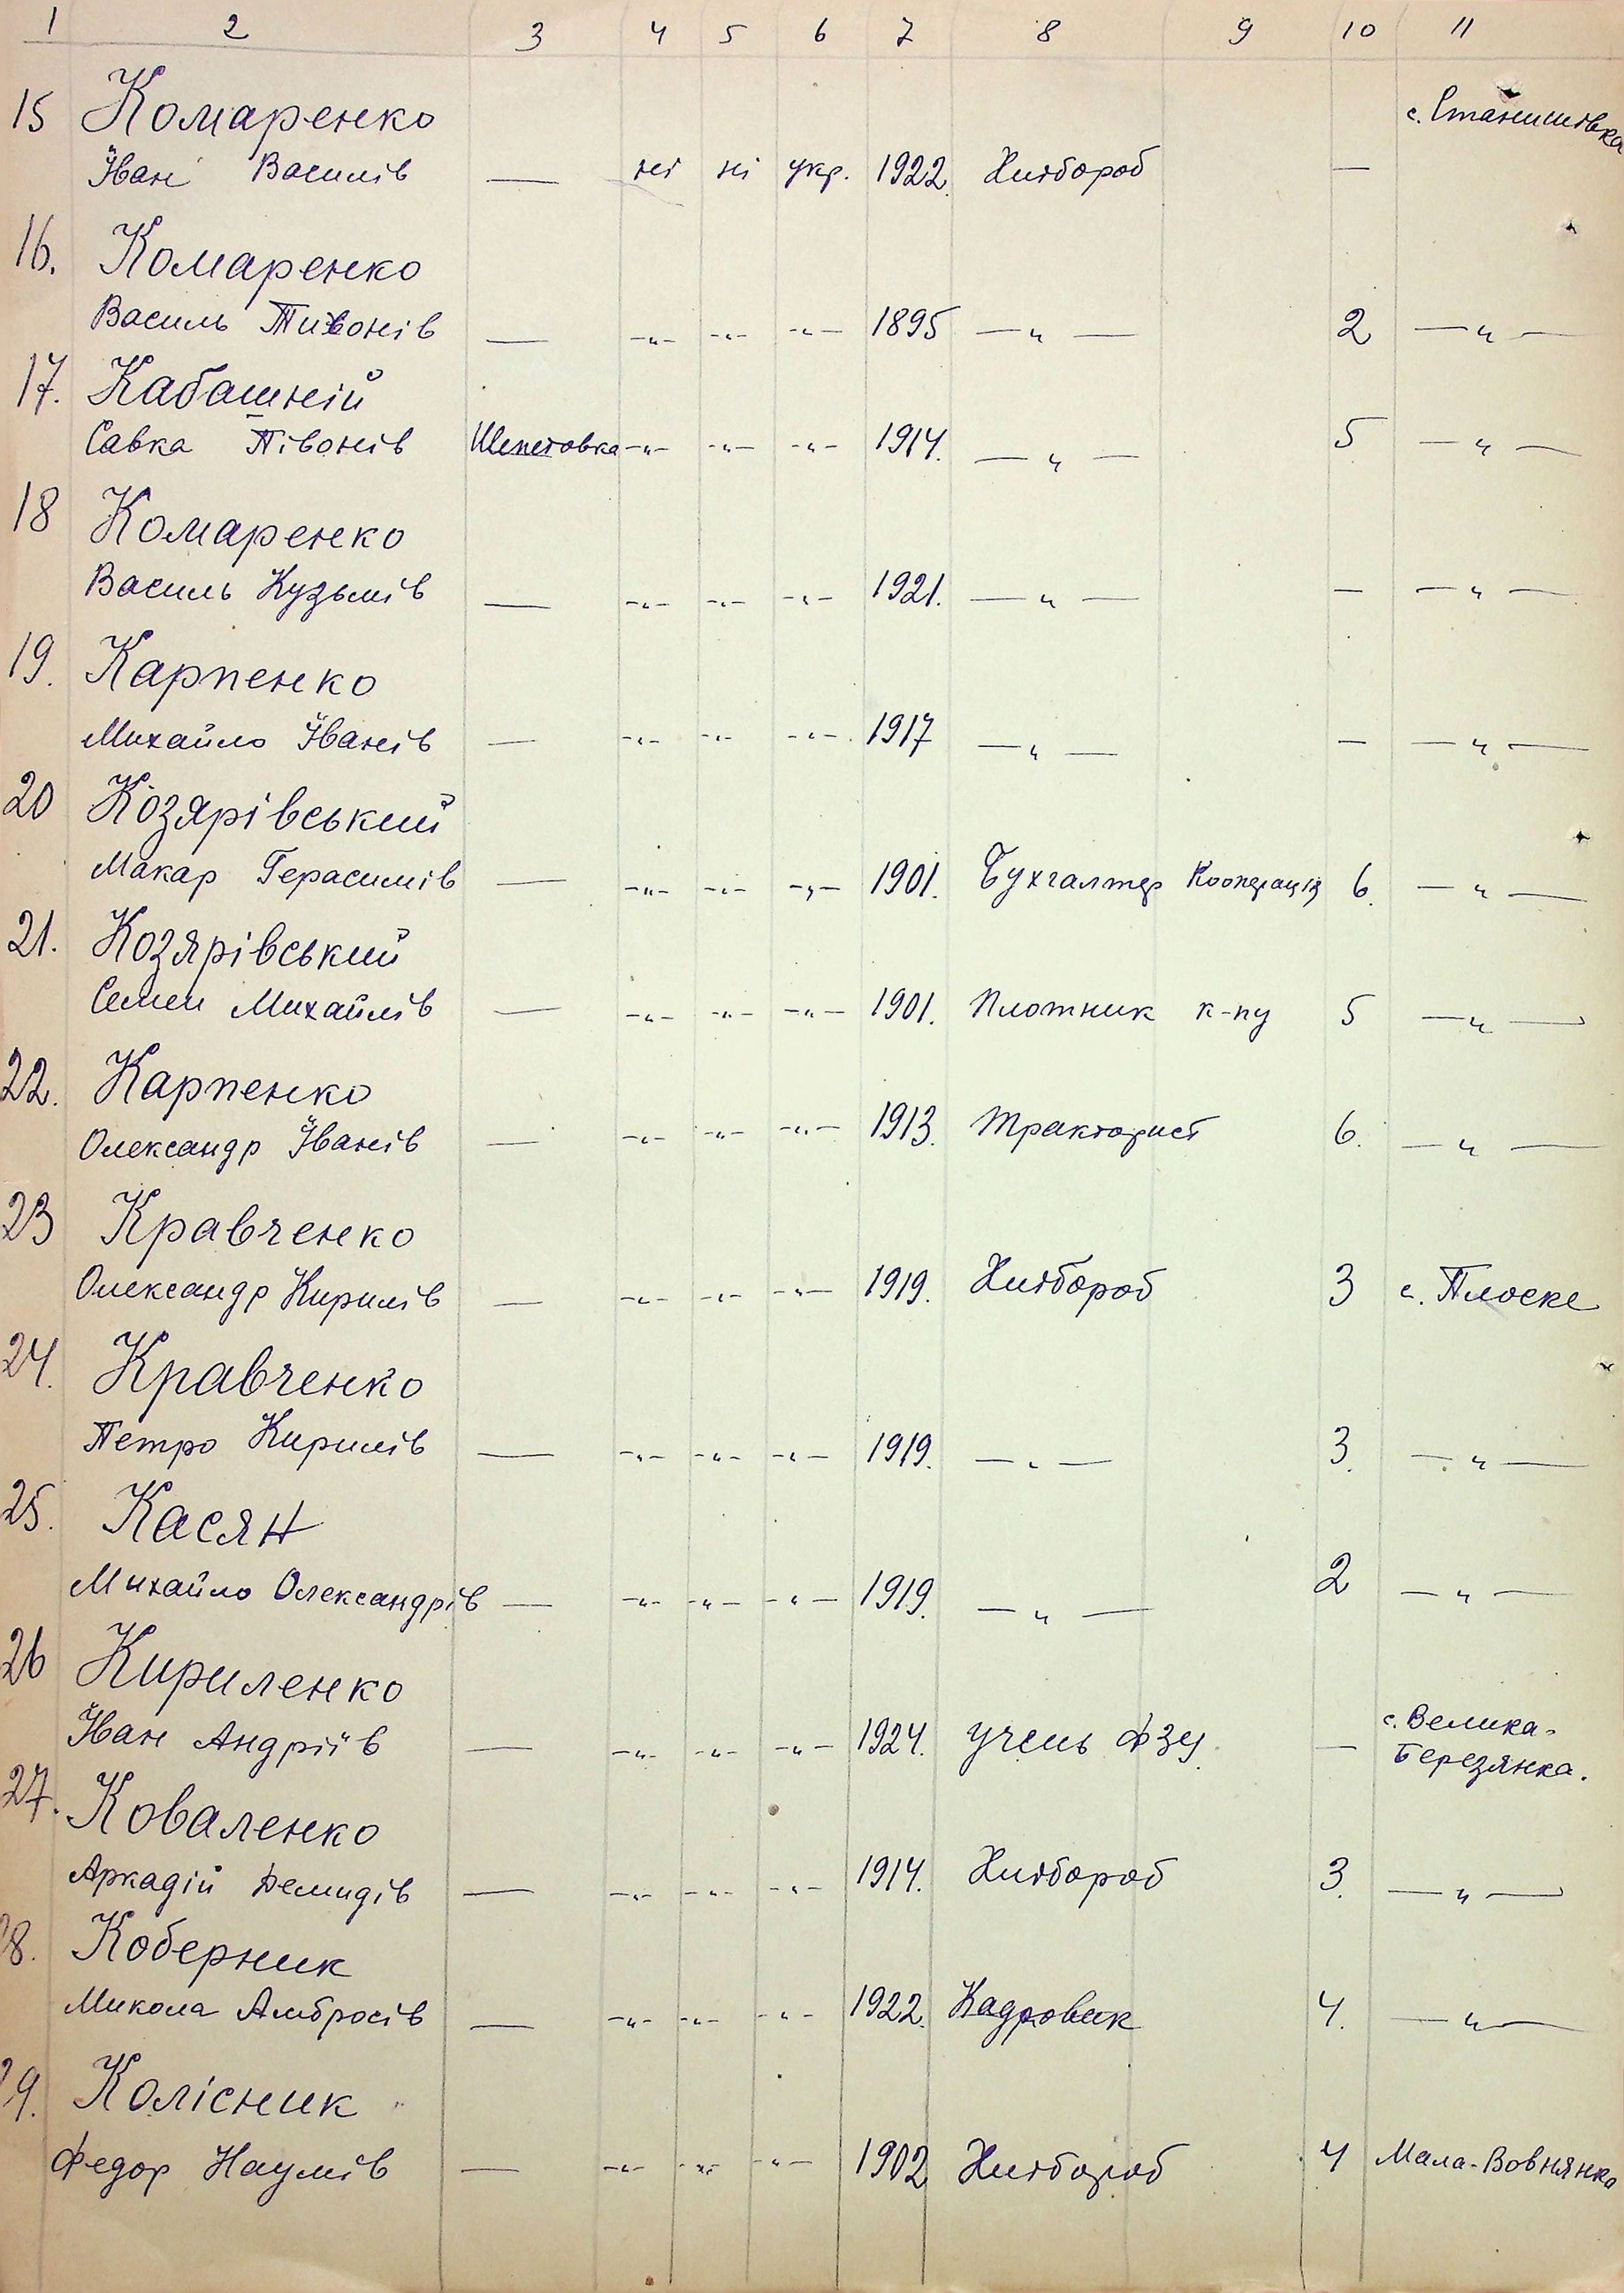 1 2 3 4 5 6 7 8 9 10 11
15 Комаренко с. Станишівка
Іван Василів — ні ні укр. 1922. Хлібороб —
16. Комаренко
Василь Тивонів — -„- -„- -„- 1895 —„— 2 —„—
17. Кабашній
Савка Півонів Шепетовка -„- -„- -„- 1914. —„— 5 —„—
18 Комаренко
Василь Кузьмів — -„- -„- -„- 1921. —„— — —„—
19. Карпенко
Михайло Іванів — -„- -„- -„- 1917 —„— — —„—
20 Козярівський
Макар Герасимів — -„- -„- -„- 1901. Бухгалтер Кооперація 6. —„—
21. Козярівський
Семен Михайлів — -„- -„- -„- 1901. Плотник к-пу 5 —„—
22. Карпенко
Олександр Іванів — -„- -„- -„- 1913. Тракторист 6. —„—
23 Кравченко
Олександр Кирилів — -„- -„- -„- 1919. Хлібороб 3 с. Плоске
24. Кравченко
Петро Кирилів — -„- -„- -„- 1919. —„— 3. —„—
25. Касян
Михайло Олександрів — -„- -„- -„- 1919. —„— 2 —„—
26 Кириленко
Іван Андріїв — -„- -„- -„- 1924. учень ФЗУ. — с. Велика-
Березянка.
27. Коваленко
Аркадій Демидів — -„- -„- -„- 1914. Хлібороб 3. —„—
28. Коберник
Микола Амбросів — -„- -„- -„- 1922. Кадровик 4. —„—
29. Колісник
Федор Наумів — -„- -„- -„- 1902 Хлібороб 4 Мала-Вовнянка